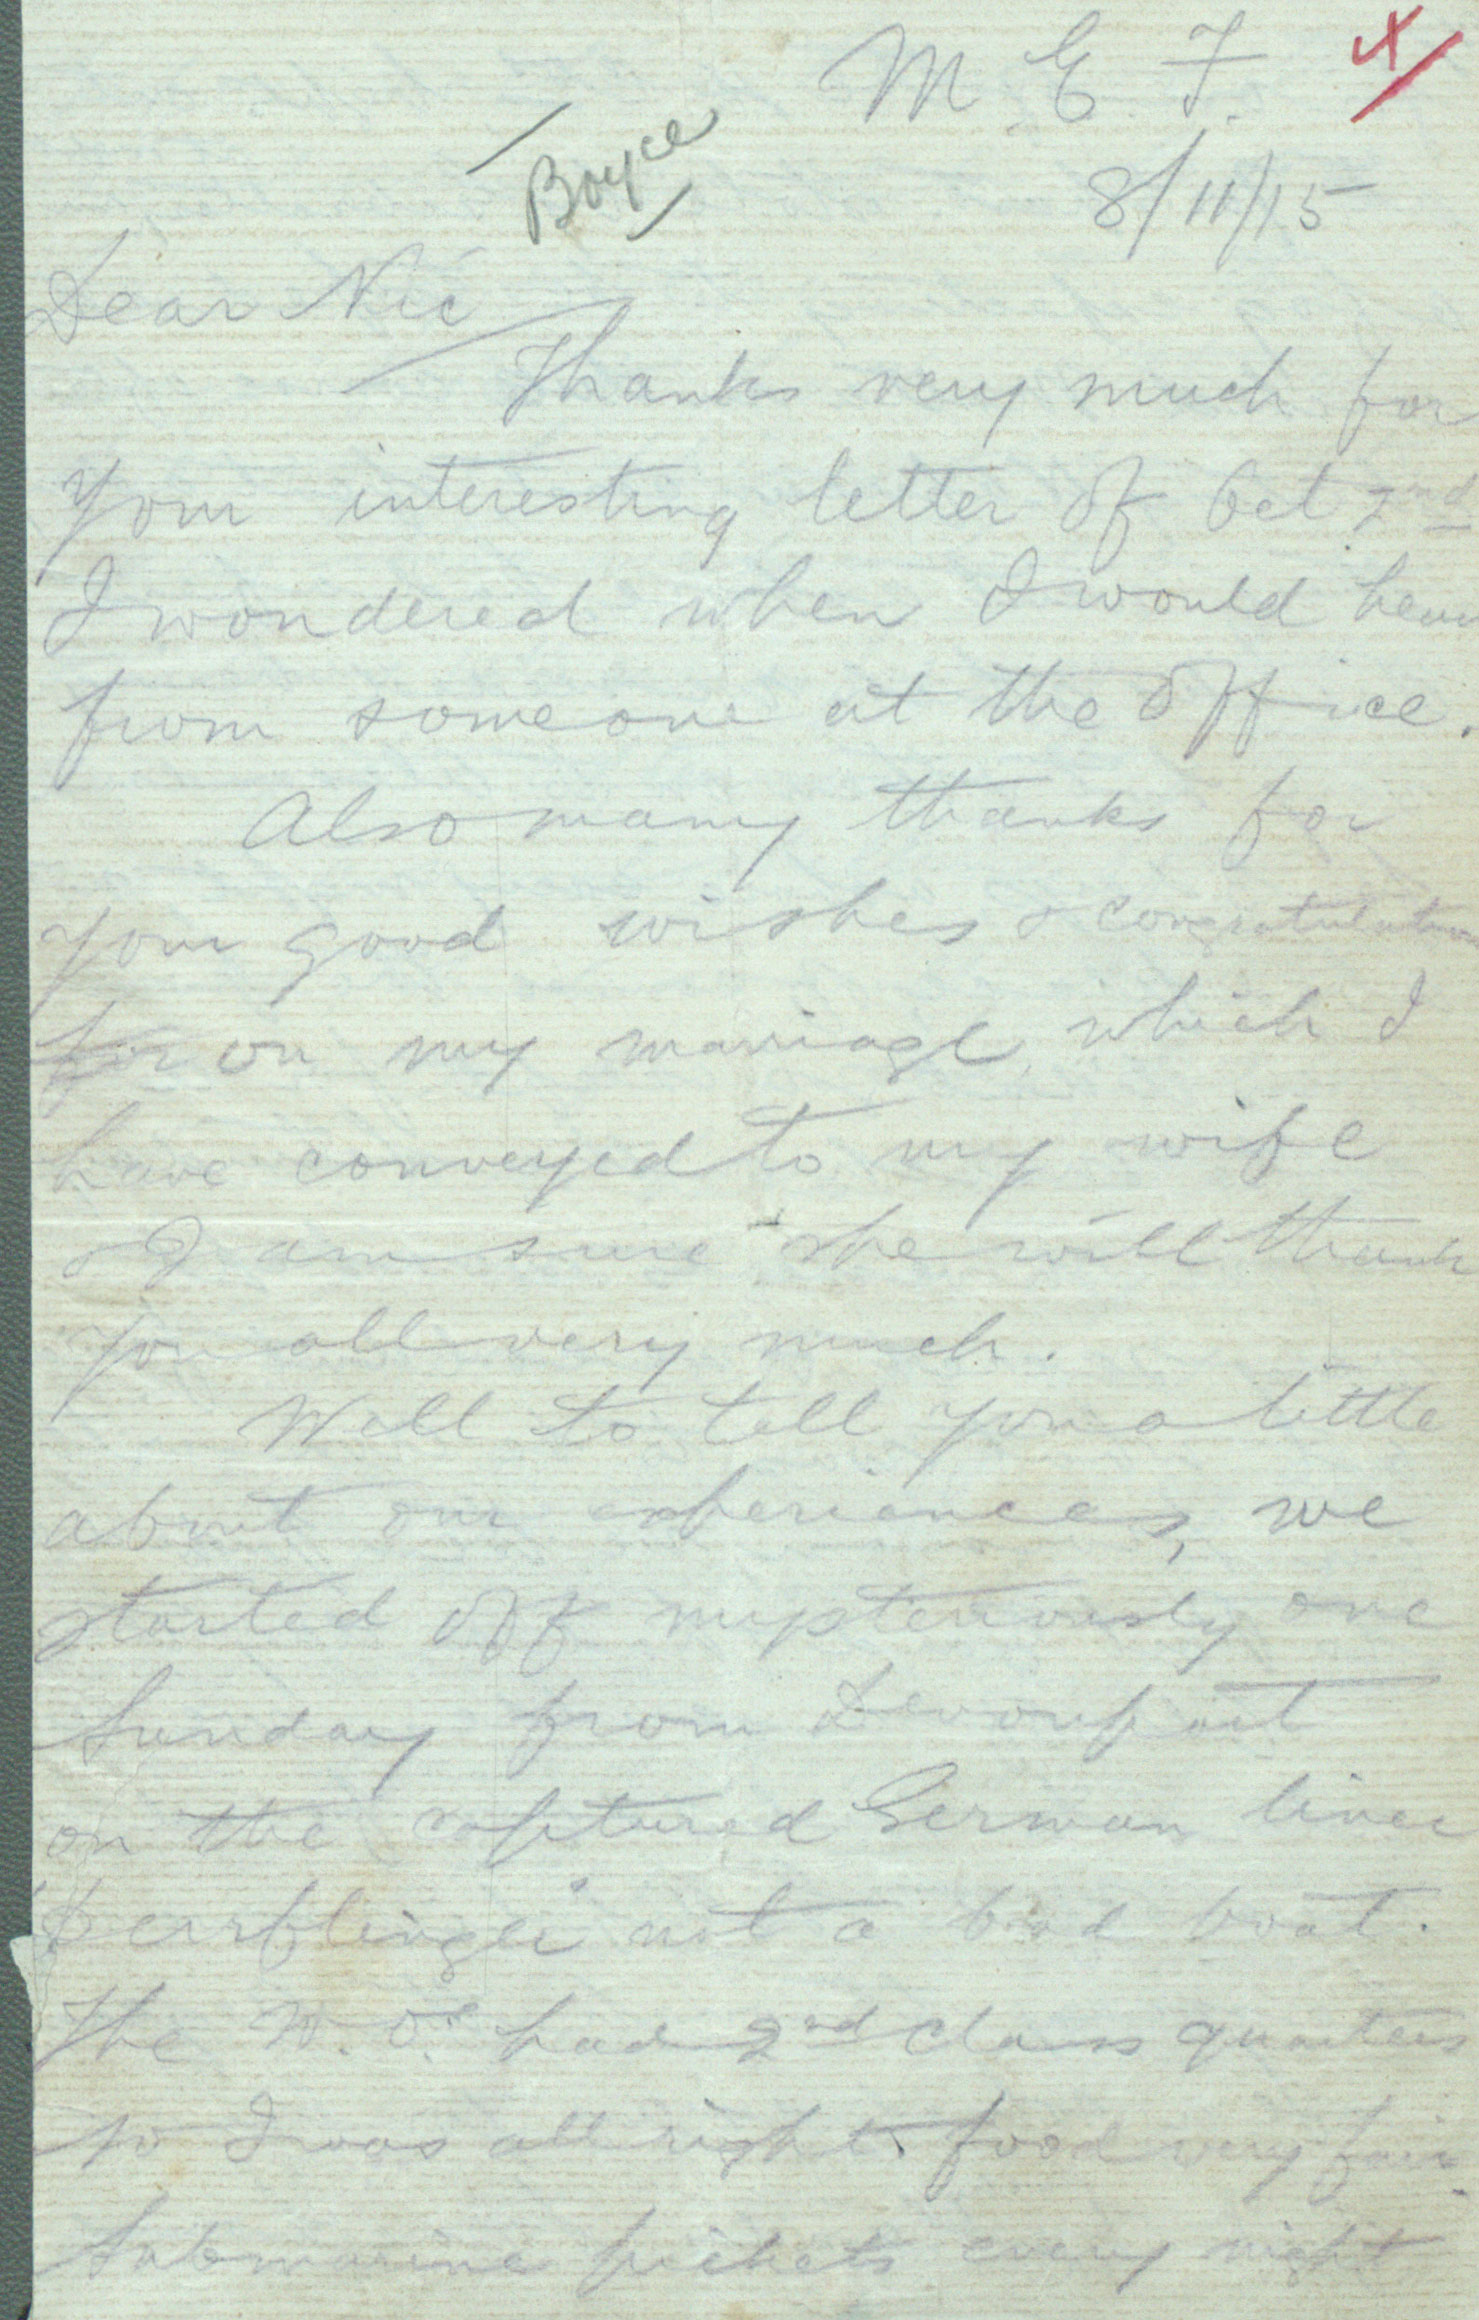 M. E. F. X/
Boyce
8/11/15
Dear Nic
Thanks very much for
your interesting letter of Oct 2nd
I wondered when I would hear
from someone at the office.
Also many thanks for
your good wishes & congratulations
for on my marriage, which I
have conveyed to my wife
& I am sure she will thank
you all very much.
Well to tell you a little
about our experiences, we
started off mysteriously one
Sunday from Devonport
on the captured German liner
"Derfflinger" not a bad boat.
The N.C.O's had 2nd class quarters
so I was all right & food very fair.
Submarine pickets every night